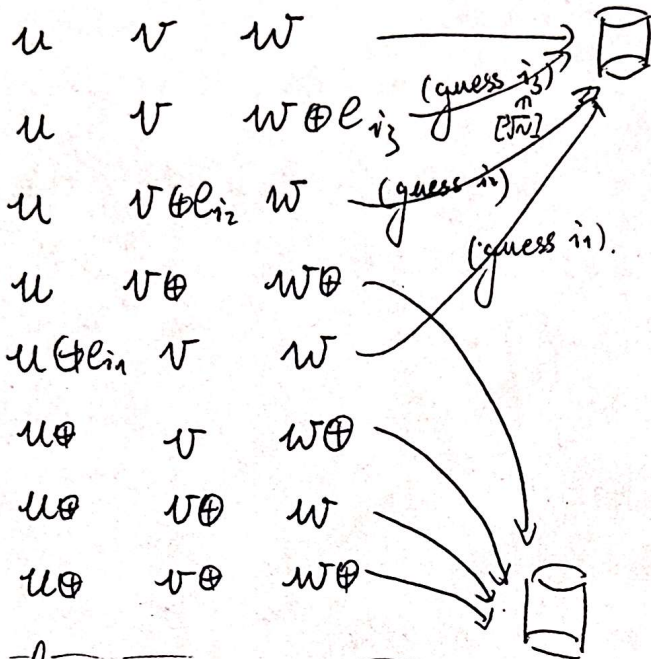 u v w
u v w⊕e_{i_3} (guess i_3)
∈
[∛n]
u v⊕e_{i_2} w (guess i_2)
(guess i_1).
u v⊕ w⊕
u⊕e_{i_1} v w
u⊕ v w⊕
u⊕ v⊕ w
u⊕ v⊕ w⊕